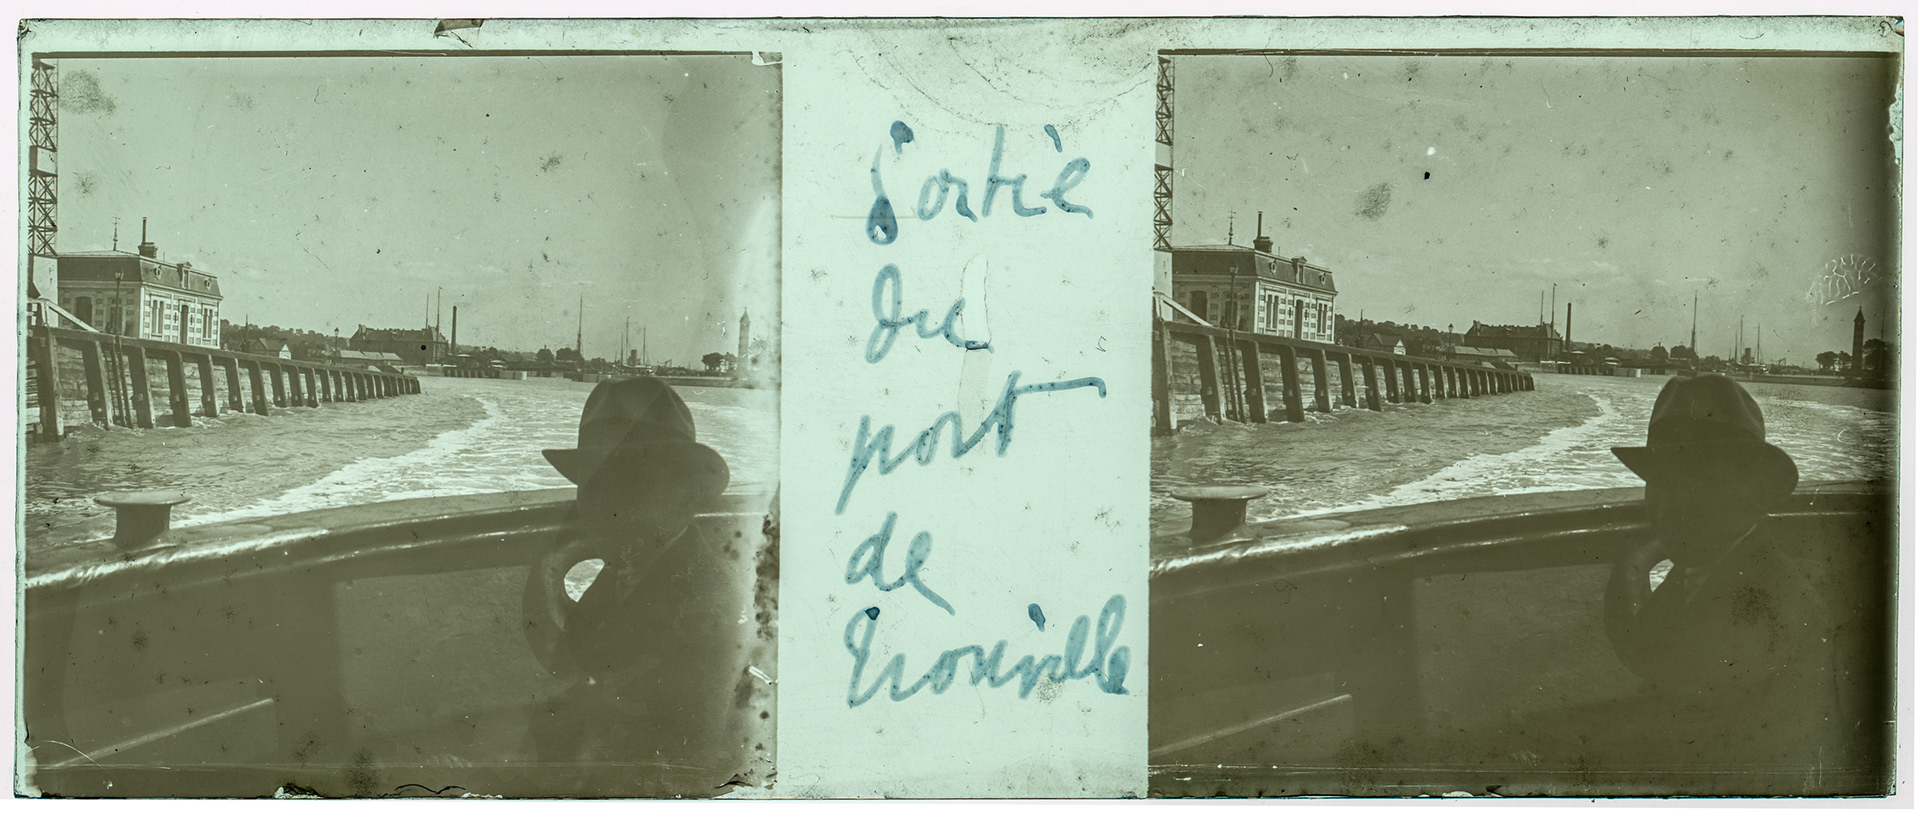 Sortie
du
port
de
Trouville